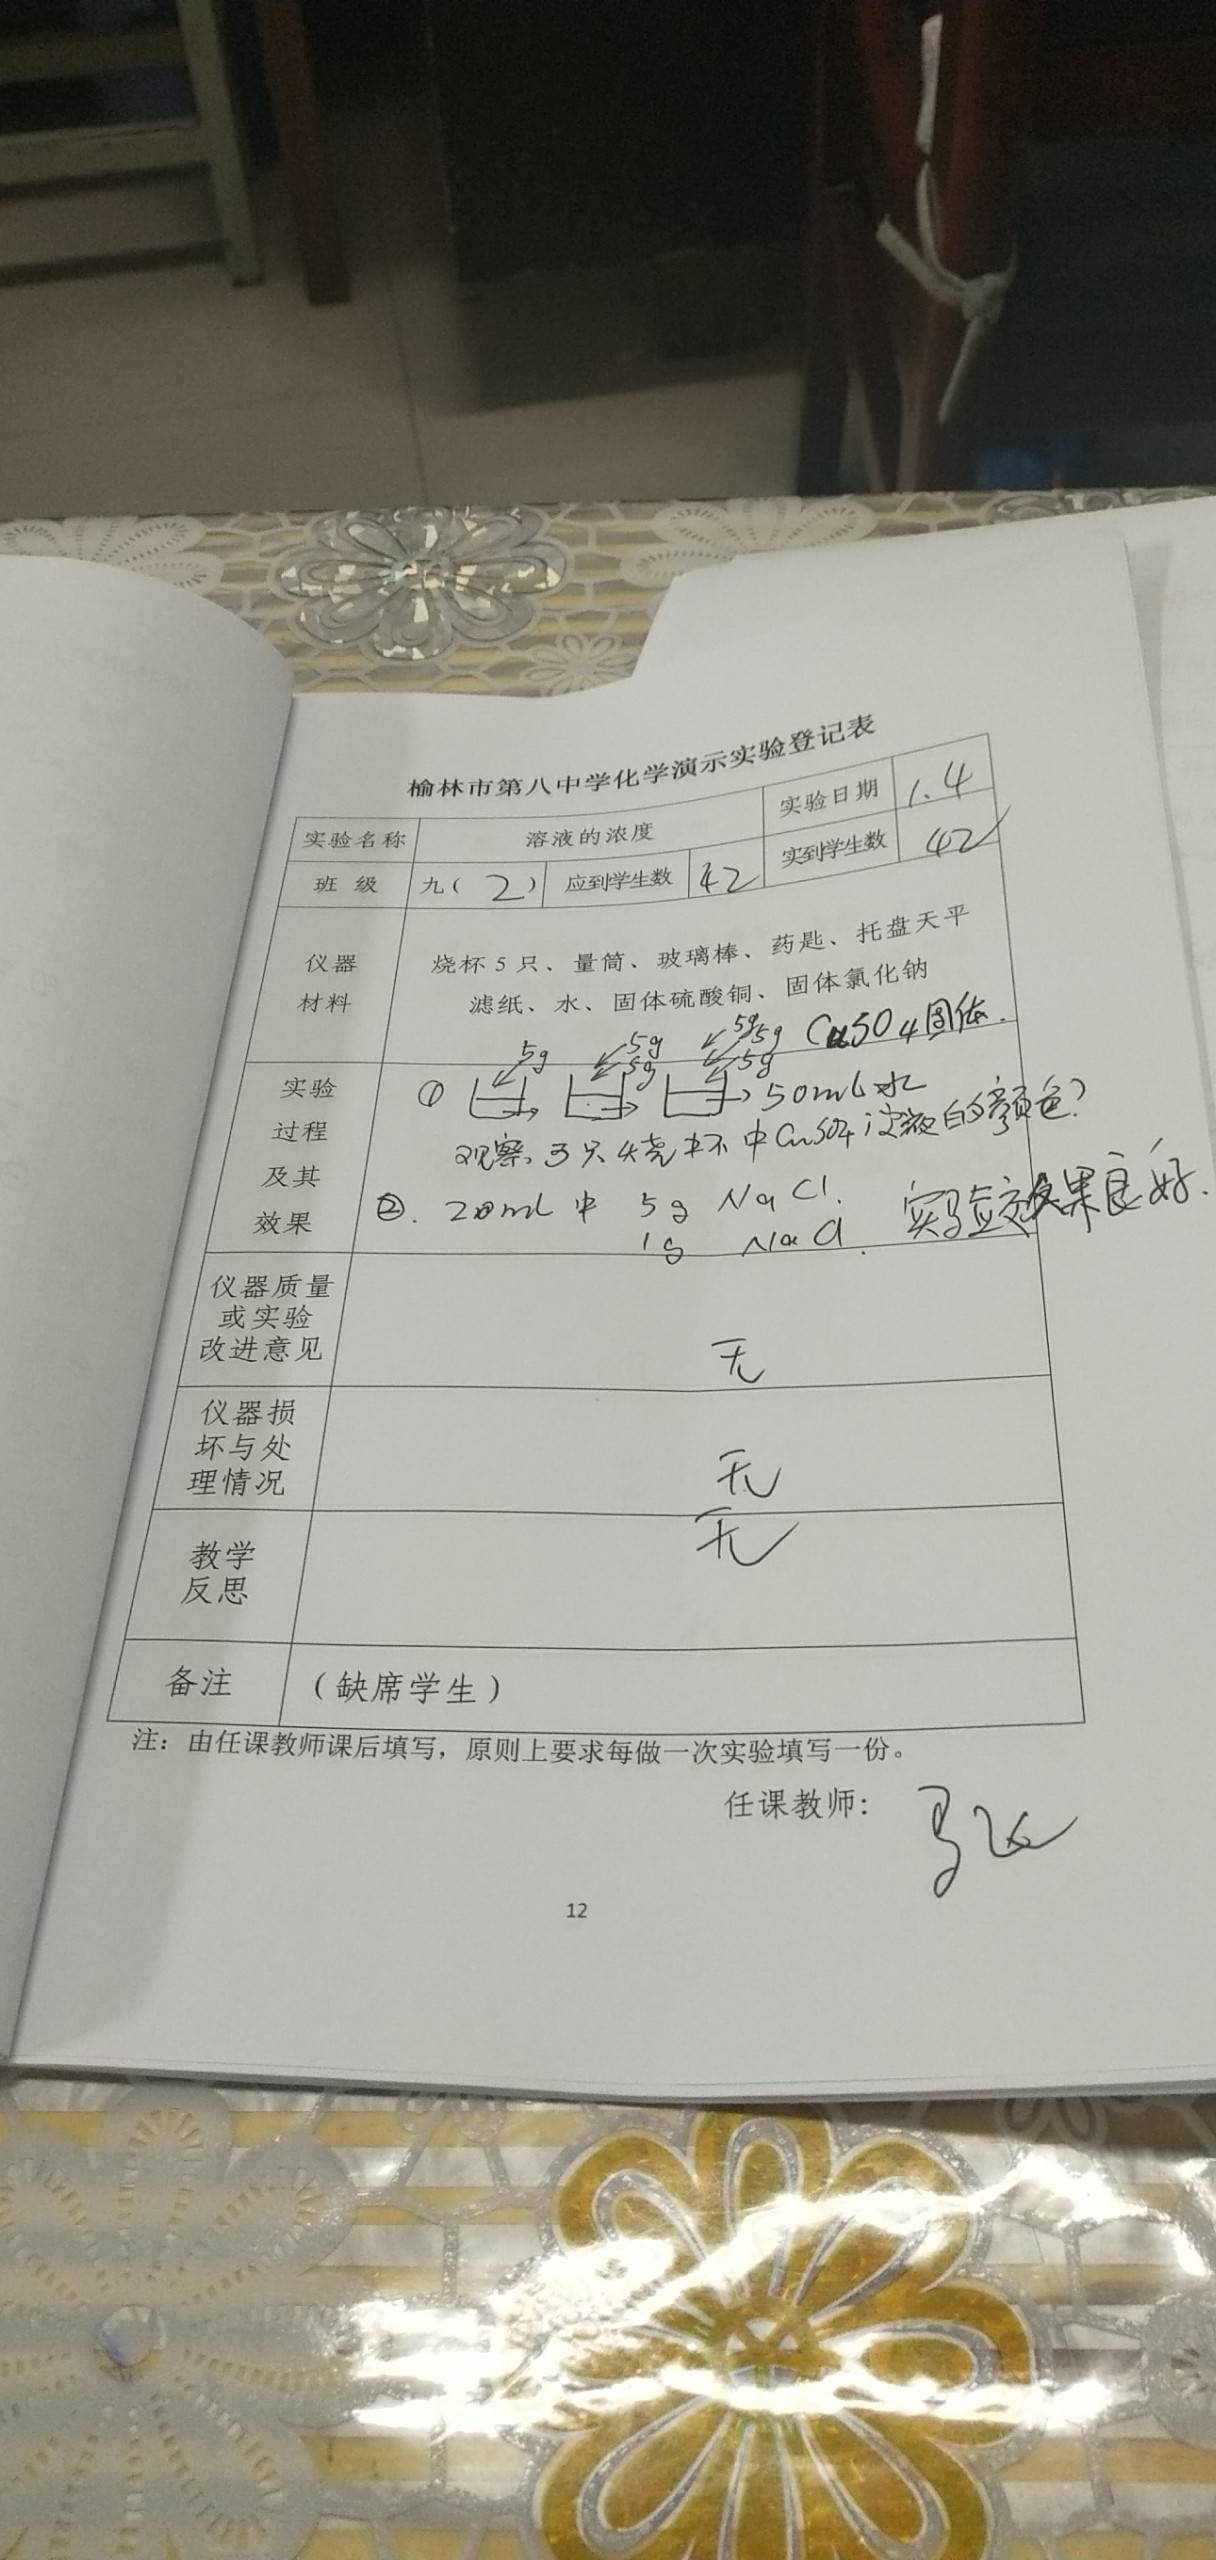 榆林市第八中学化学演示实验登记表
实验名称 溶液的浓度 实验日期 1.4
班 级 九( 2 ) 应到学生数 42 实到学生数 42
仪器
材料
烧杯 5 只、量筒、玻璃棒、药匙、托盘天平
滤纸、水、固体硫酸铜、固体氯化钠
实验
过程
及其
效果
5g 5g 5g 5g 5g 5g CuSO4固体.
① 50mL水
观察3只烧杯中CuSO4溶液的颜色?
②. 20mL中 5g NaCl. 实验效果良好.
1g NaCl.
仪器质量
或实验
改进意见
无
仪器损
坏与处
理情况
无
教学
反思
无
备注 (缺席学生)
注：由任课教师课后填写，原则上要求每做一次实验填写一份。
任课教师: 马
12